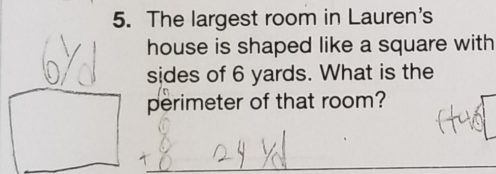 5. The largest room in Lauren's
house is shaped like a square with
6yd
sides of 6 yards. What is the
perimeter of that room?
6
6
6
+ 6
24 yd